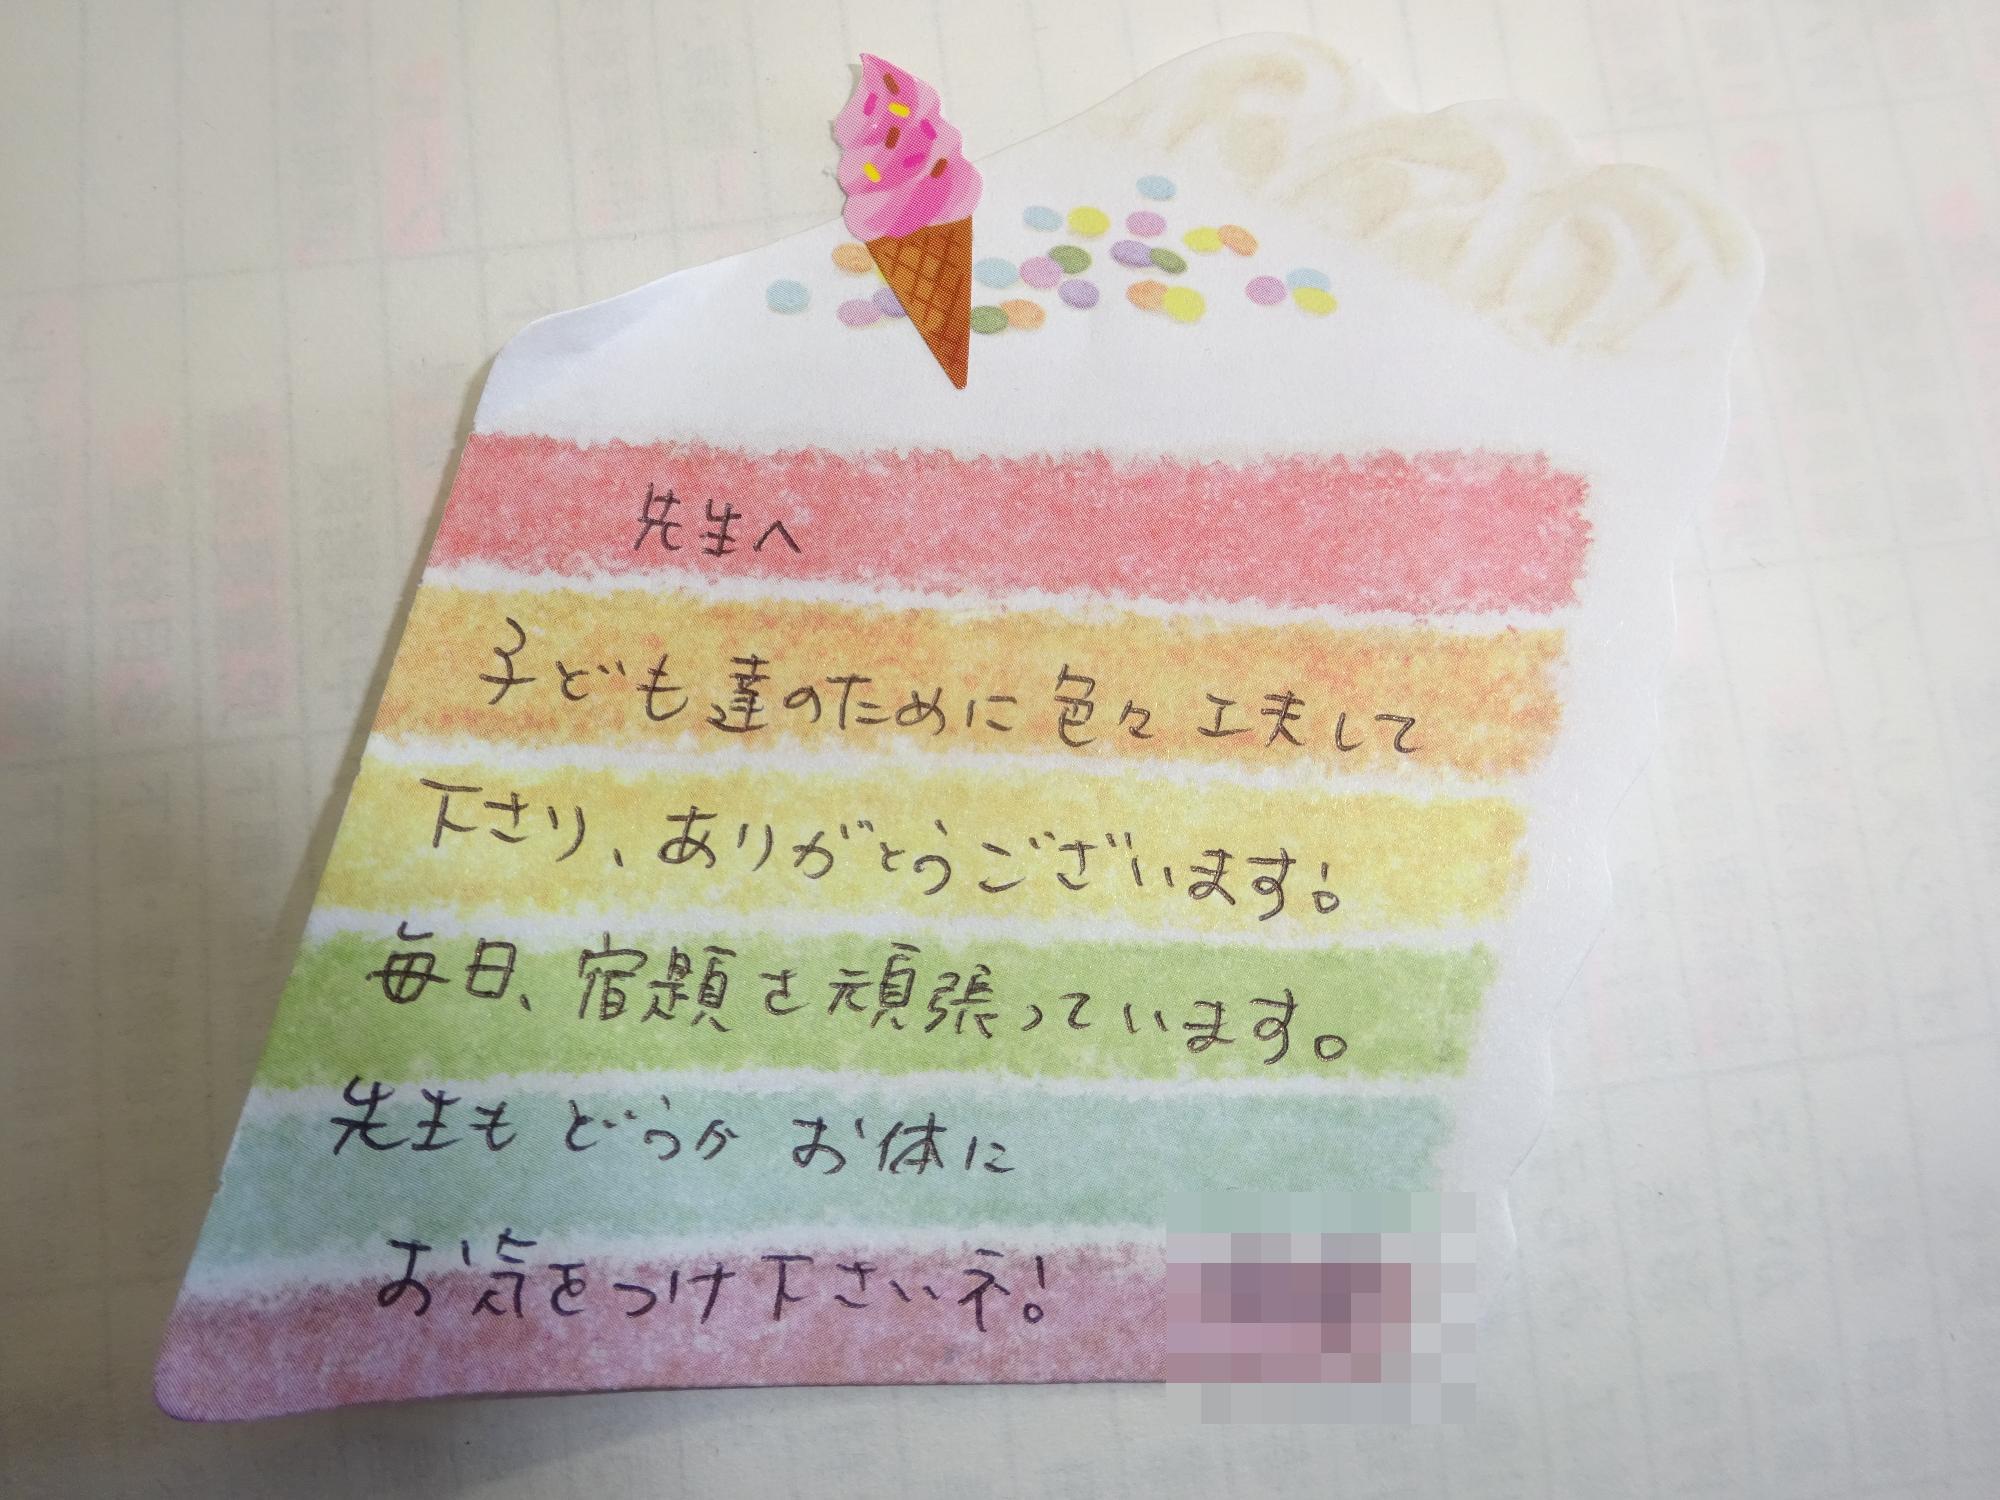 先生へ
子ども達のために色々工夫して
下さり、ありがとうございます!
毎日、宿題を頑張っています。
先生もどうかお体に
お気をつけ下さいネ!